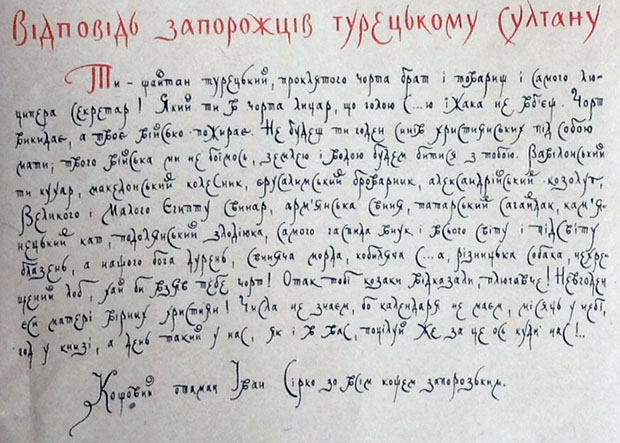 Відповідь запорожців турецькому султану
Ти - шайтан турецький, проклятого чорта брат і товариш і самого лю-
ципера секретар! Який ти в чорта лицар, що голою с...ю їжака не вб'єш. Чорт
викидає, а твоє військо пожирає. Не будеш ти годен синів христіянських під собою
мати; твого війська ми не боїмось, землею і водою будем битися з тобою. Вавілонський
ти кухар, македонський колесник, єрусалимський броварник, александрійський козолуп,
Великого і Малого Єгипту свинар, арм'янська свиня, татарський сагайдак, кам'я-
нецький кат, подолянський злодіюка, самого гаспида внук і всього світу і підсвіту
блазень, а нашого бога дурень, свиняча морда, кобиляча с...а, різницька собака, нехре-
щений лоб, хай би взяв тебе чорт! Отак тобі козаки відказали, плюгавче! Невгоден
єси матері вірних христіян! Числа не знаєм, бо календаря не маєм, місяць у небі,
год у книзі, а день такий у нас, як і в вас, поцілуй же за це ось куди нас!..
Кошовий отаман Іван Сірко зо всім кошем запорозьким.